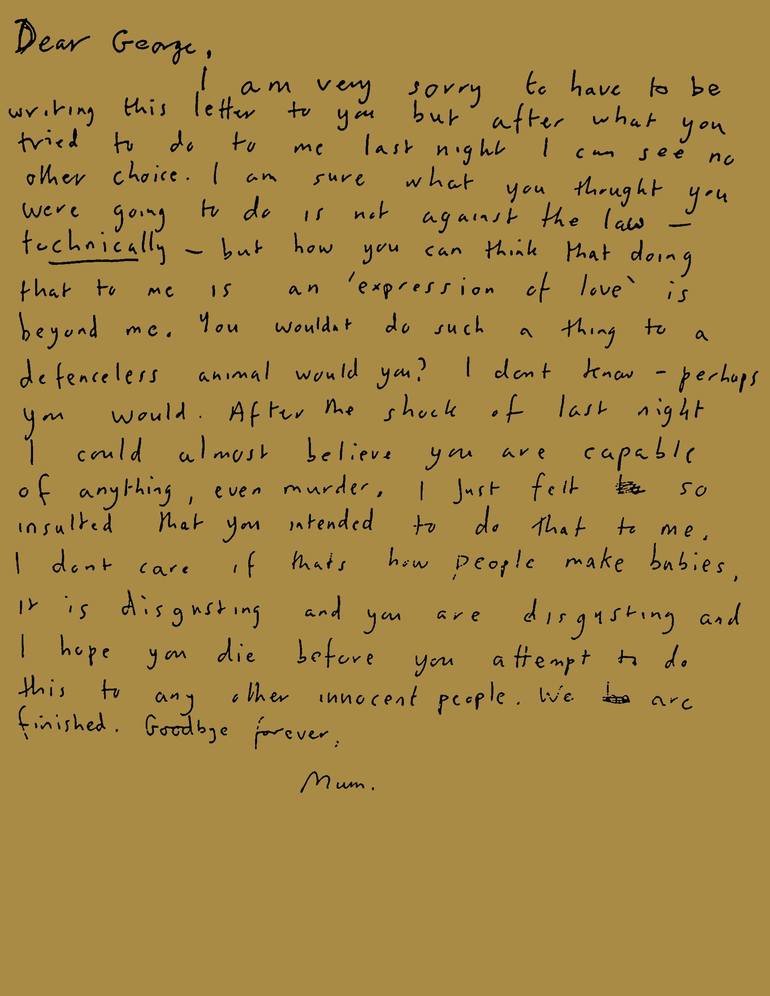 Dear George,
I am very sorry to have to be
writing this letter to you but after what you
tried to do to me last night I can see no
other choice. I am sure what you thought you
were going to do is not against the law –
technically – but how you can think that doing
that to me is an 'expression of love' is
beyond me. You wouldnt do such a thing to a
defenceless animal would you? I dont know – perhaps
you would. After the shock of last night
I could almost believe you are capable
of anything, even murder. I just felt so
insulted that you intended to do that to me.
I dont care if thats how people make babies,
it is disgusting and you are disgusting and
I hope you die before you attempt to do
this to any other innocent people. We are
finished. Goodbye forever.
Mum.